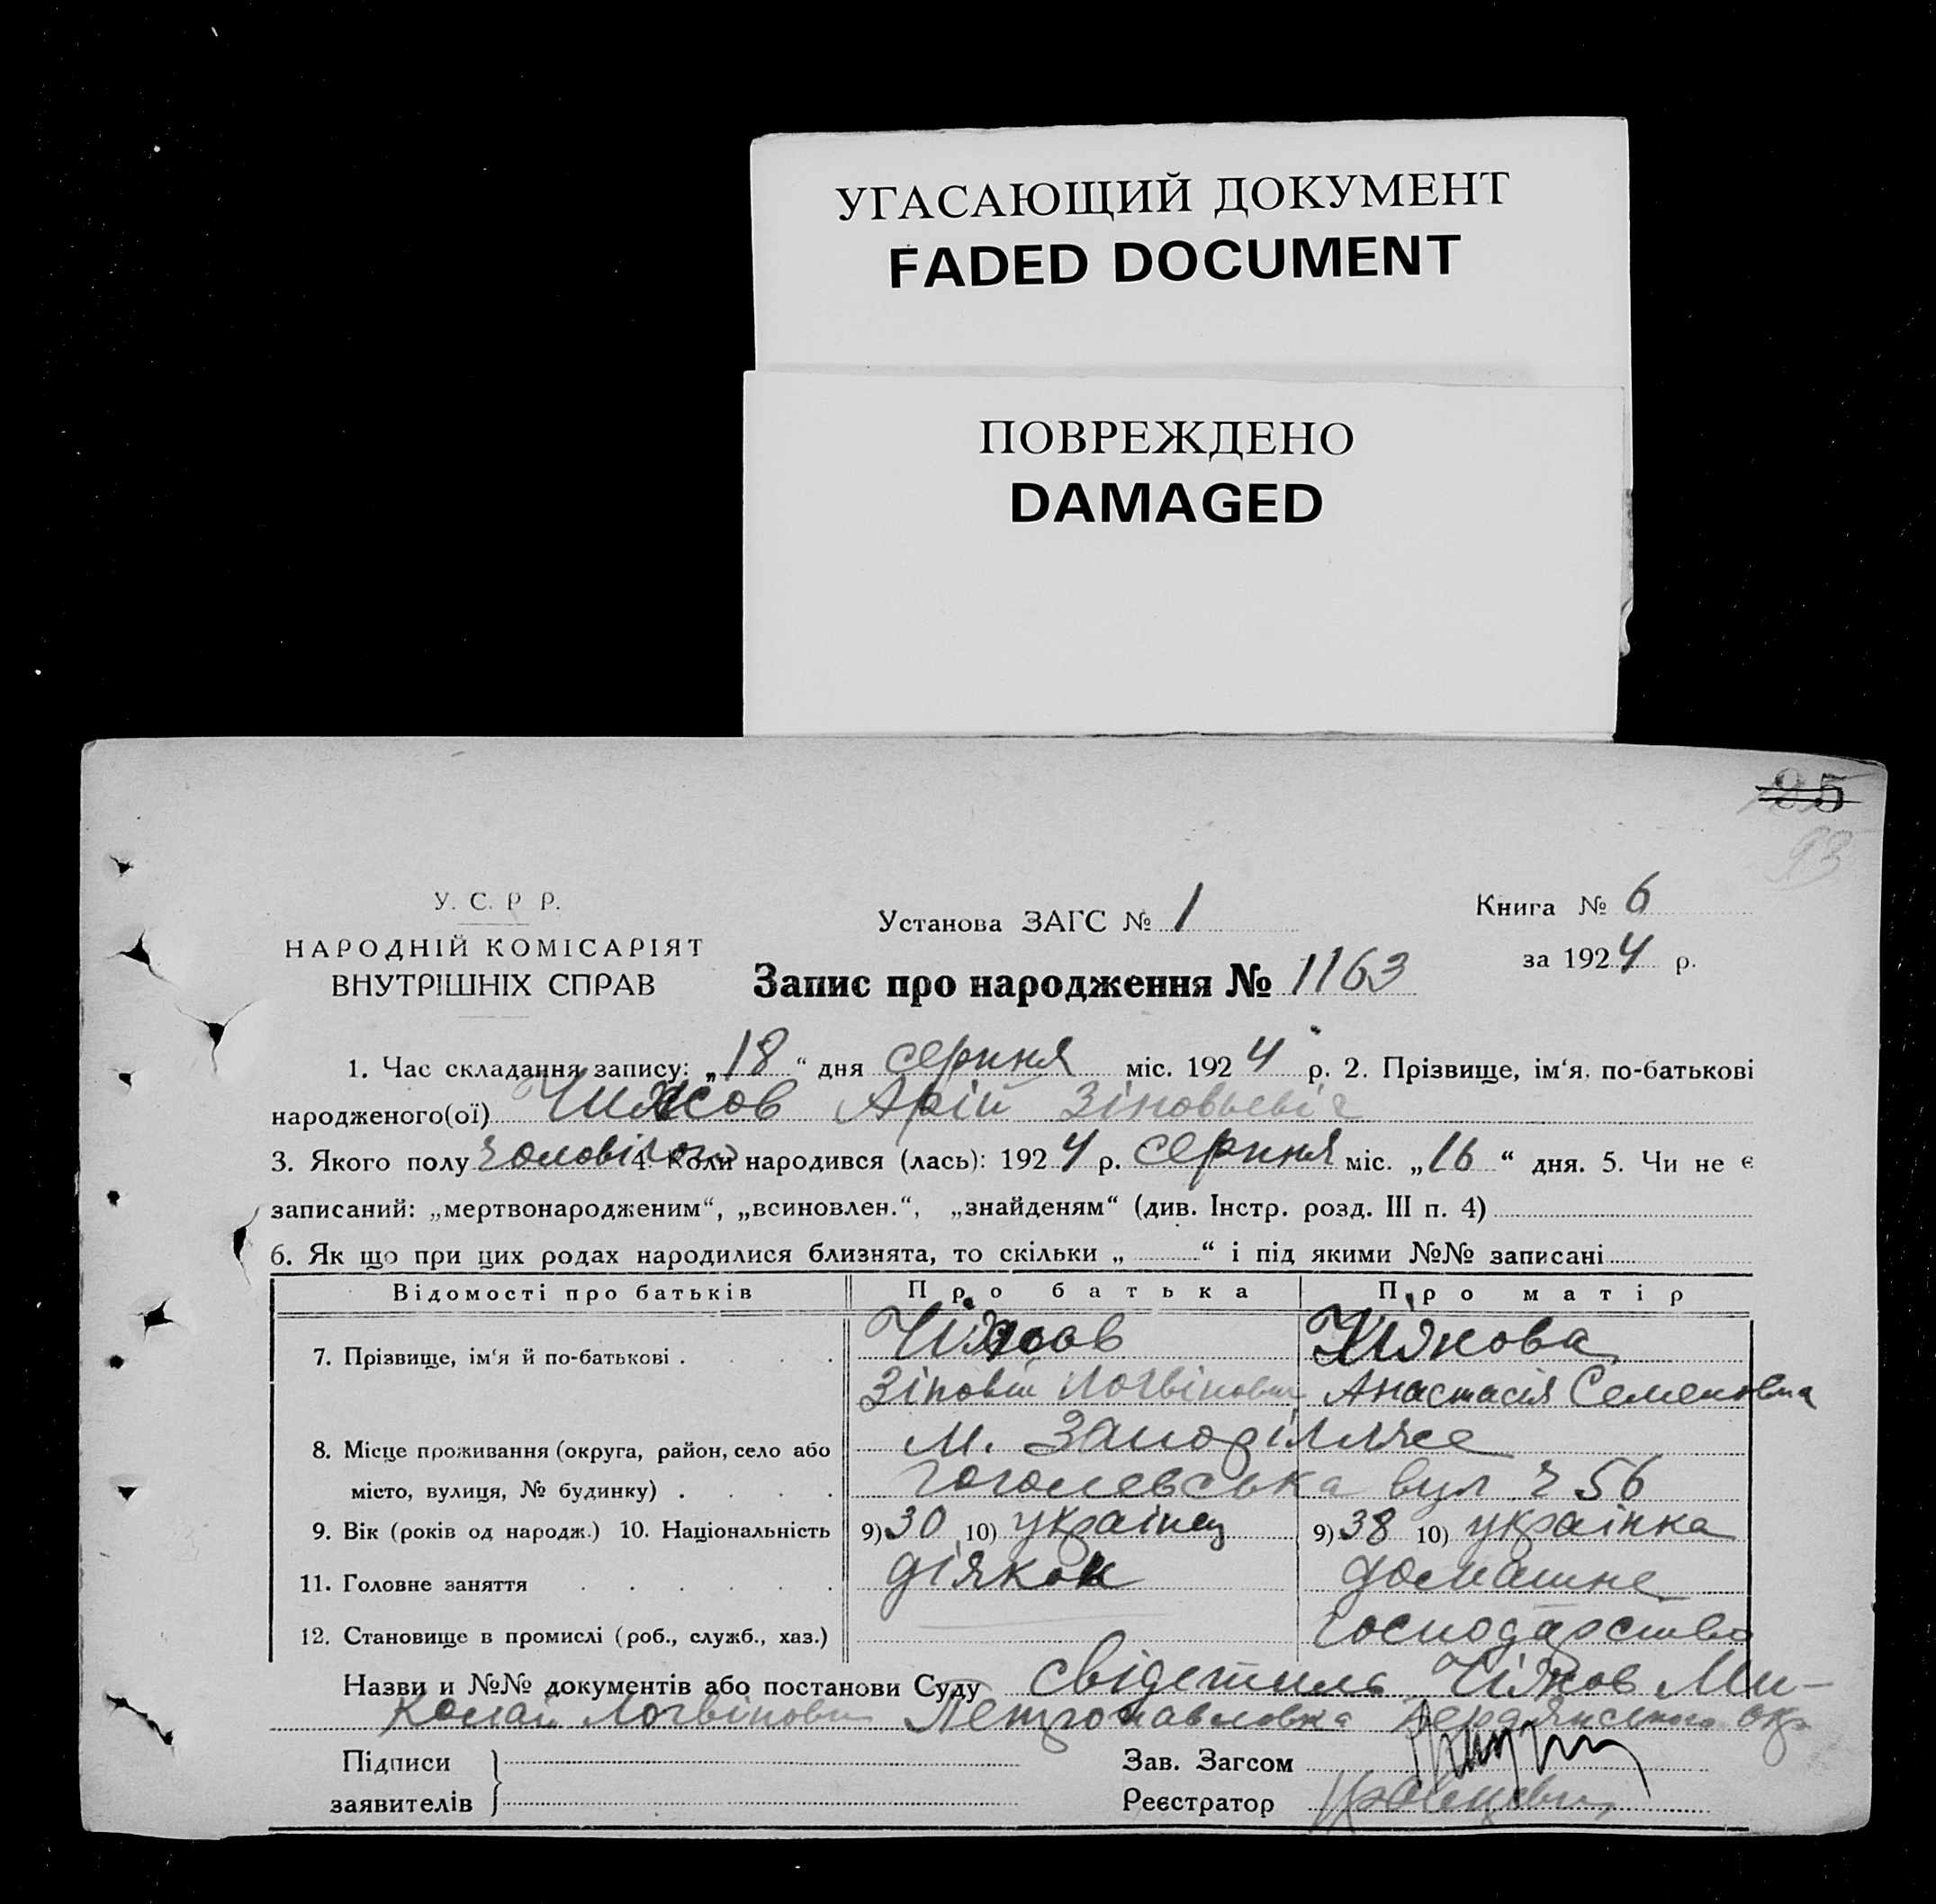 УГАСАЮЩИЙ ДОКУМЕНТ
FADED DOCUMENT
ПОВРЕЖДЕНО
DAMAGED
95
93
У. С. Р Р.
НАРОДНІЙ КОМІСАРІЯТ
ВНУТРІШНІХ СПРАВ
Установа ЗАГС № 1
Книга № 6
за 1924 р.
Запис про народження № 1163
1. Час складання запису: „18“ дня серпня міс. 1924 р. 2. Прізвище, ім‘я, по-батькові
народженого(ої) Чижов Арій Зіновьевіч
3. Якого полу чоловічого 4. Коли народився (лась): 1924 р. серпня міс. „16“ дня. 5. Чи не є
записаний: „мертвонародженим“, „всиновлен.“, „знайденям“ (див. Інстр. розд. III п. 4)
6. Як що при цих родах народилися близнята, то скільки „ “ і під якими №№ записані
Відомості про батьків Про батька Про матір
7. Прізвище, ім‘я й по-батькові . . . . Чижов Чіжова
Зіновій Логвінович Анастасія Семеновна
8. Місце проживання (округа, район, село або м. Запоріжже
місто, вулиця, № будинку) . . . . Гоголевська вул ч 56
9. Вік (років од народж.) 10. Національність 9) 30 10) українец 9) 38 10) українка
11. Головне заняття . . . . . . діякон домашне
12. Становище в промислі (роб., служб., хаз.) господарство
Назви и №№ документів або постанови Суду свідетиль Чіжов Ми-
колай Логвінович Петропавловка Бердянського окр
Підписи
заявителів
Зав. Загсом
Реєстратор